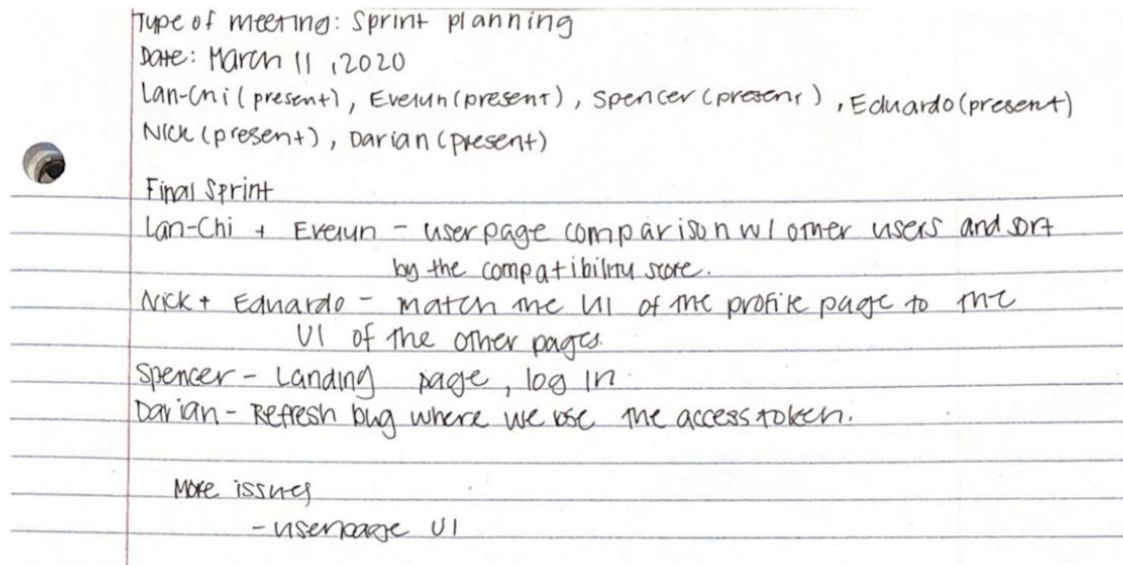 Type of meeting: Sprint planning
Date: March 11, 2020
Lan-Chi (present), Evelyn (present), Spencer (present), Eduardo (present)
Nick (present), Darian (present)
Final Sprint
Lan-Chi + Evelyn - user page comparison w/ other users and sort
by the compatibility score.
Nick + Eduardo - match the UI of the profile page to the
UI of the other pages.
Spencer - Landing page, log in
Darian - Refresh bug where we lose the access token.
More issues
- userpage UI